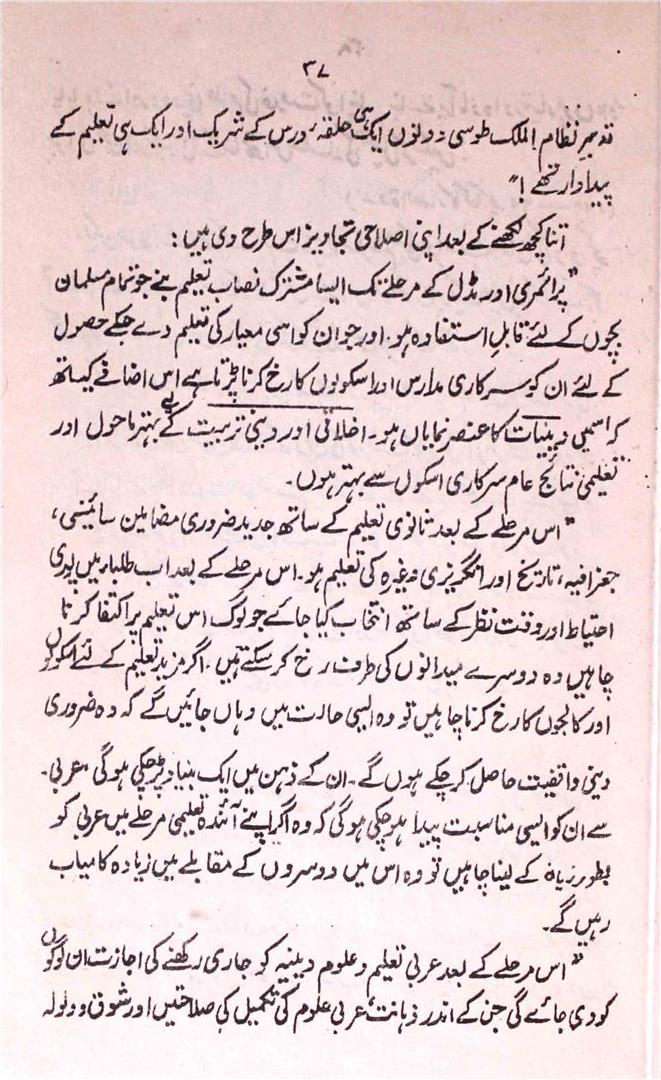 ۳۷
تدبیر نظام الملک طوسی دونوں ایک ہی حلقۂ درس کے شریک اور ایک ہی تعلیم کے
پیداوار تھے!"
اتنا کچھ لکھنے کے بعد اپنی اصلاحی تجاویز اس طرح دی ہیں:
"پرائمری اور مڈل کے مرحلے تک ایسا مشترک نصاب تعلیم بنے جو تمام مسلمان
بچوں کے لئے قابلِ استفادہ ہو۔ اور جو ان کو اسی معیار کی تعلیم دے جسکے حصول
کے لئے ان کو سرکاری مدارس اور اسکولوں کا رخ کرنا پڑتا ہے اس اضافے کیساتھ
کہ اسمیں دینیات کا عنصر نمایاں ہو۔ اخلاقی اور دینی تربیت کے لیے بہتر ماحول اور
تعلیمی نتائج عام سرکاری اسکول سے بہتر ہوں۔
"اس مرحلے کے بعد ثانوی تعلیم کے ساتھ جدید ضروری مضامین سائینسی،
جغرافیہ، تاریخ اور انگریزی وغیرہ کی تعلیم ہو۔ اس مرحلے کے بعد اب طلباء میں پوری
احتیاط اور وقت نظر کے ساتھ انتخاب کیا جائے جو لوگ اس تعلیم پر اکتفا کرنا
چاہیں وہ دوسرے میدانوں کی طرف رخ کر سکتے ہیں۔ اگر مزید تعلیم کے لئے اسکولوں
اور کالجوں کا رخ کرنا چاہیں تو وہ ایسی حالت میں وہاں جائیں گے کہ وہ ضروری
دینی واقفیت حاصل کر چکے ہوں گے۔ ان کے ذہن میں ایک بنیاد پڑ چکی ہوگی، عربی۔
سے ان کو ایسی مناسبت پیدا ہو چکی ہوگی کہ وہ اگر اپنے آئندہ تعلیمی مرحلے میں عربی کو
بطور زبان کے لینا چاہیں تو وہ اس میں دوسروں کے مقابلے میں زیادہ کامیاب
رہیں گے۔
"اس مرحلے کے بعد عربی تعلیم و علوم دینیہ کو جاری رکھنے کی اجازت ان لوگوں
کو دی جائے گی جن کے اندر ذہانت، عربی علوم کی تکمیل کی صلاحتیں اور شوق و ولولہ